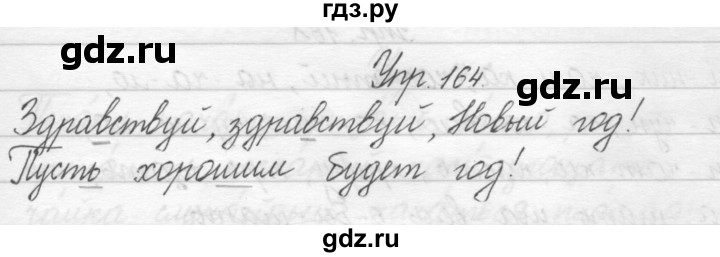 гдз.ру
gdz.ru gdz.ru
Упр. 164.
Здравствуй, здравствуй, Новый год!
Пусть хорошим будет год!
gdz.ru gdz.ru